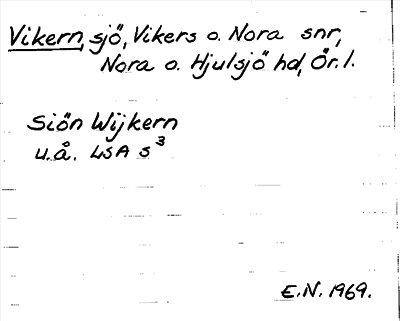 Vikern, sjö, Vikers o. Nora snr,
Nora o. Hjulsjö hd, Ör. l.
Siön Wijkern
u.å. LSA s³
E.N. 1969.